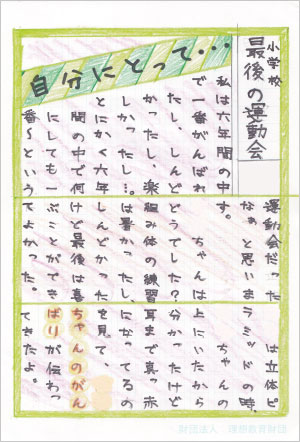 小学校
最後の運動会
自分にとって・・・
私は六年間の中
で一番がんばれ
たし、しんど
かったし、楽
しかったし…。
とにかく六年
間の中で何
にしても一
番〜という
運動会だった
なぁと思いま
す。
ちゃんは
どうでした?
組み体の練習
は暑かったし、
しんどかった
けど最後は喜
ぶことができ
てよかった。
は立体ピ
ラミッドの時、
ちゃんの
上にいたから
分かったけど
耳まで真っ赤
になってるの
を見て、
ちゃんのがん
ばりが伝わっ
てきたよ。
財団法人 理想教育財団